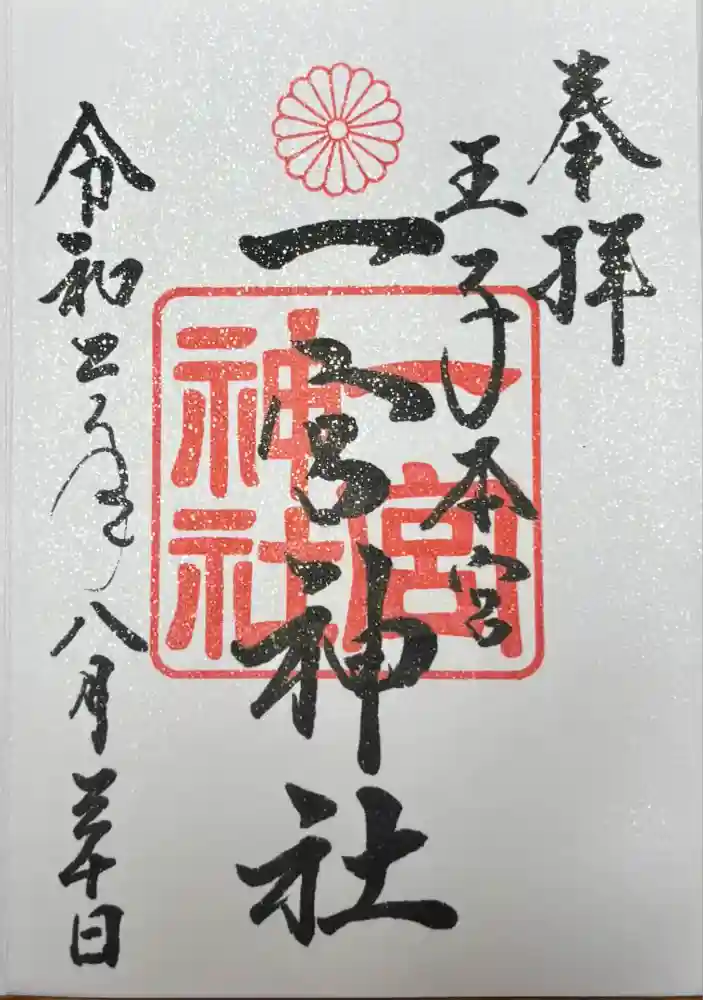 奉拝
王子本宮
一宮神社
一宮
神社
令和 年八月三十日